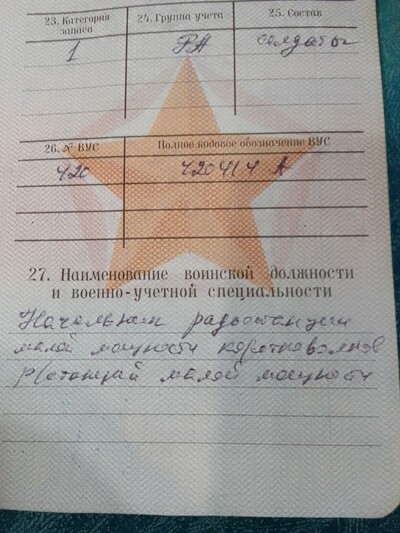 23. Категория запаса 24. Группа учета 25. Состав
1 РА солдаты
26. № ВУС Полное кодовое обозначение ВУС
420 420414 А
27. Наименование воинской должности
и военно-учетной специальности
Начальник радиостанции
малой мощности коротковолнов
Р/станций малой мощности